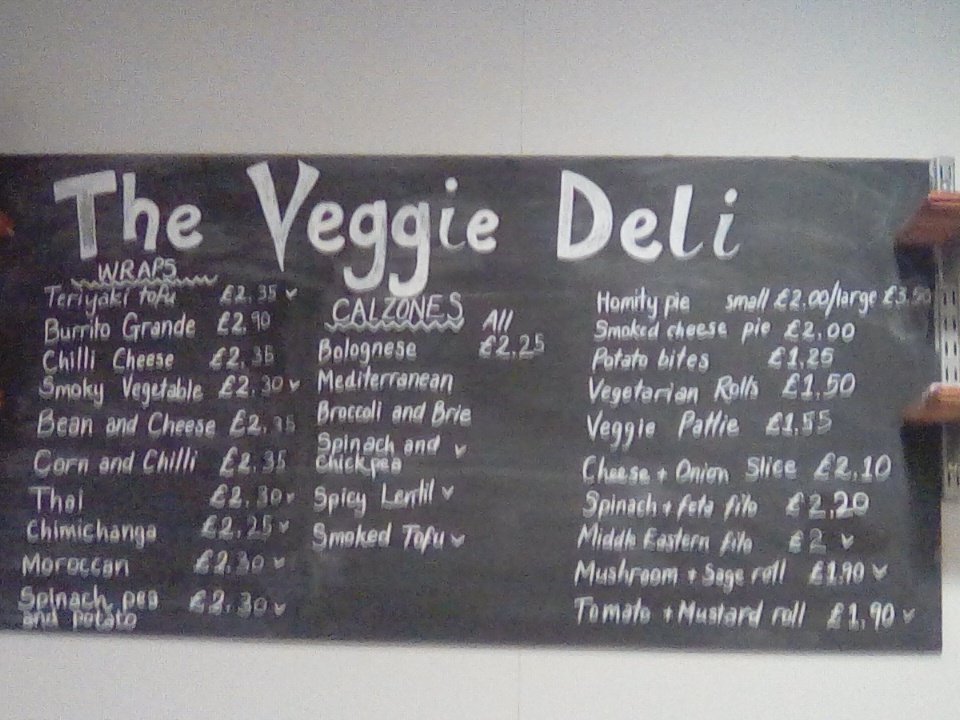 The Veggie Deli
WRAPS
Teriyaki tofu £2.35 v
Burrito Grande £2.90
Chilli Cheese £2.35
Smoky Vegetable £2.30 v
Bean and Cheese £2.35
Corn and Chilli £2.35
Thai £2.30 v
Chimichanga £2.25 v
Moroccan £2.30 v
Spinach, pea £2.30 v
and potato
CALZONES
All
Bolognese £2.25
Mediterranean
Broccoli and Brie
Spinach and v
chickpea
Spicy Lentil v
Smoked Tofu v
Homity pie small £2.00/large
Smoked cheese pie £2.00
Potato bites £1.25
Vegetarian Rolls £1.50
Veggie Pattie £1.55
Cheese + Onion Slice £2.10
Spinach + feta filo £2.20
Middle Eastern filo £2 v
Mushroom + Sage roll £1.90 v
Tomato + Mustard roll £1.90 v